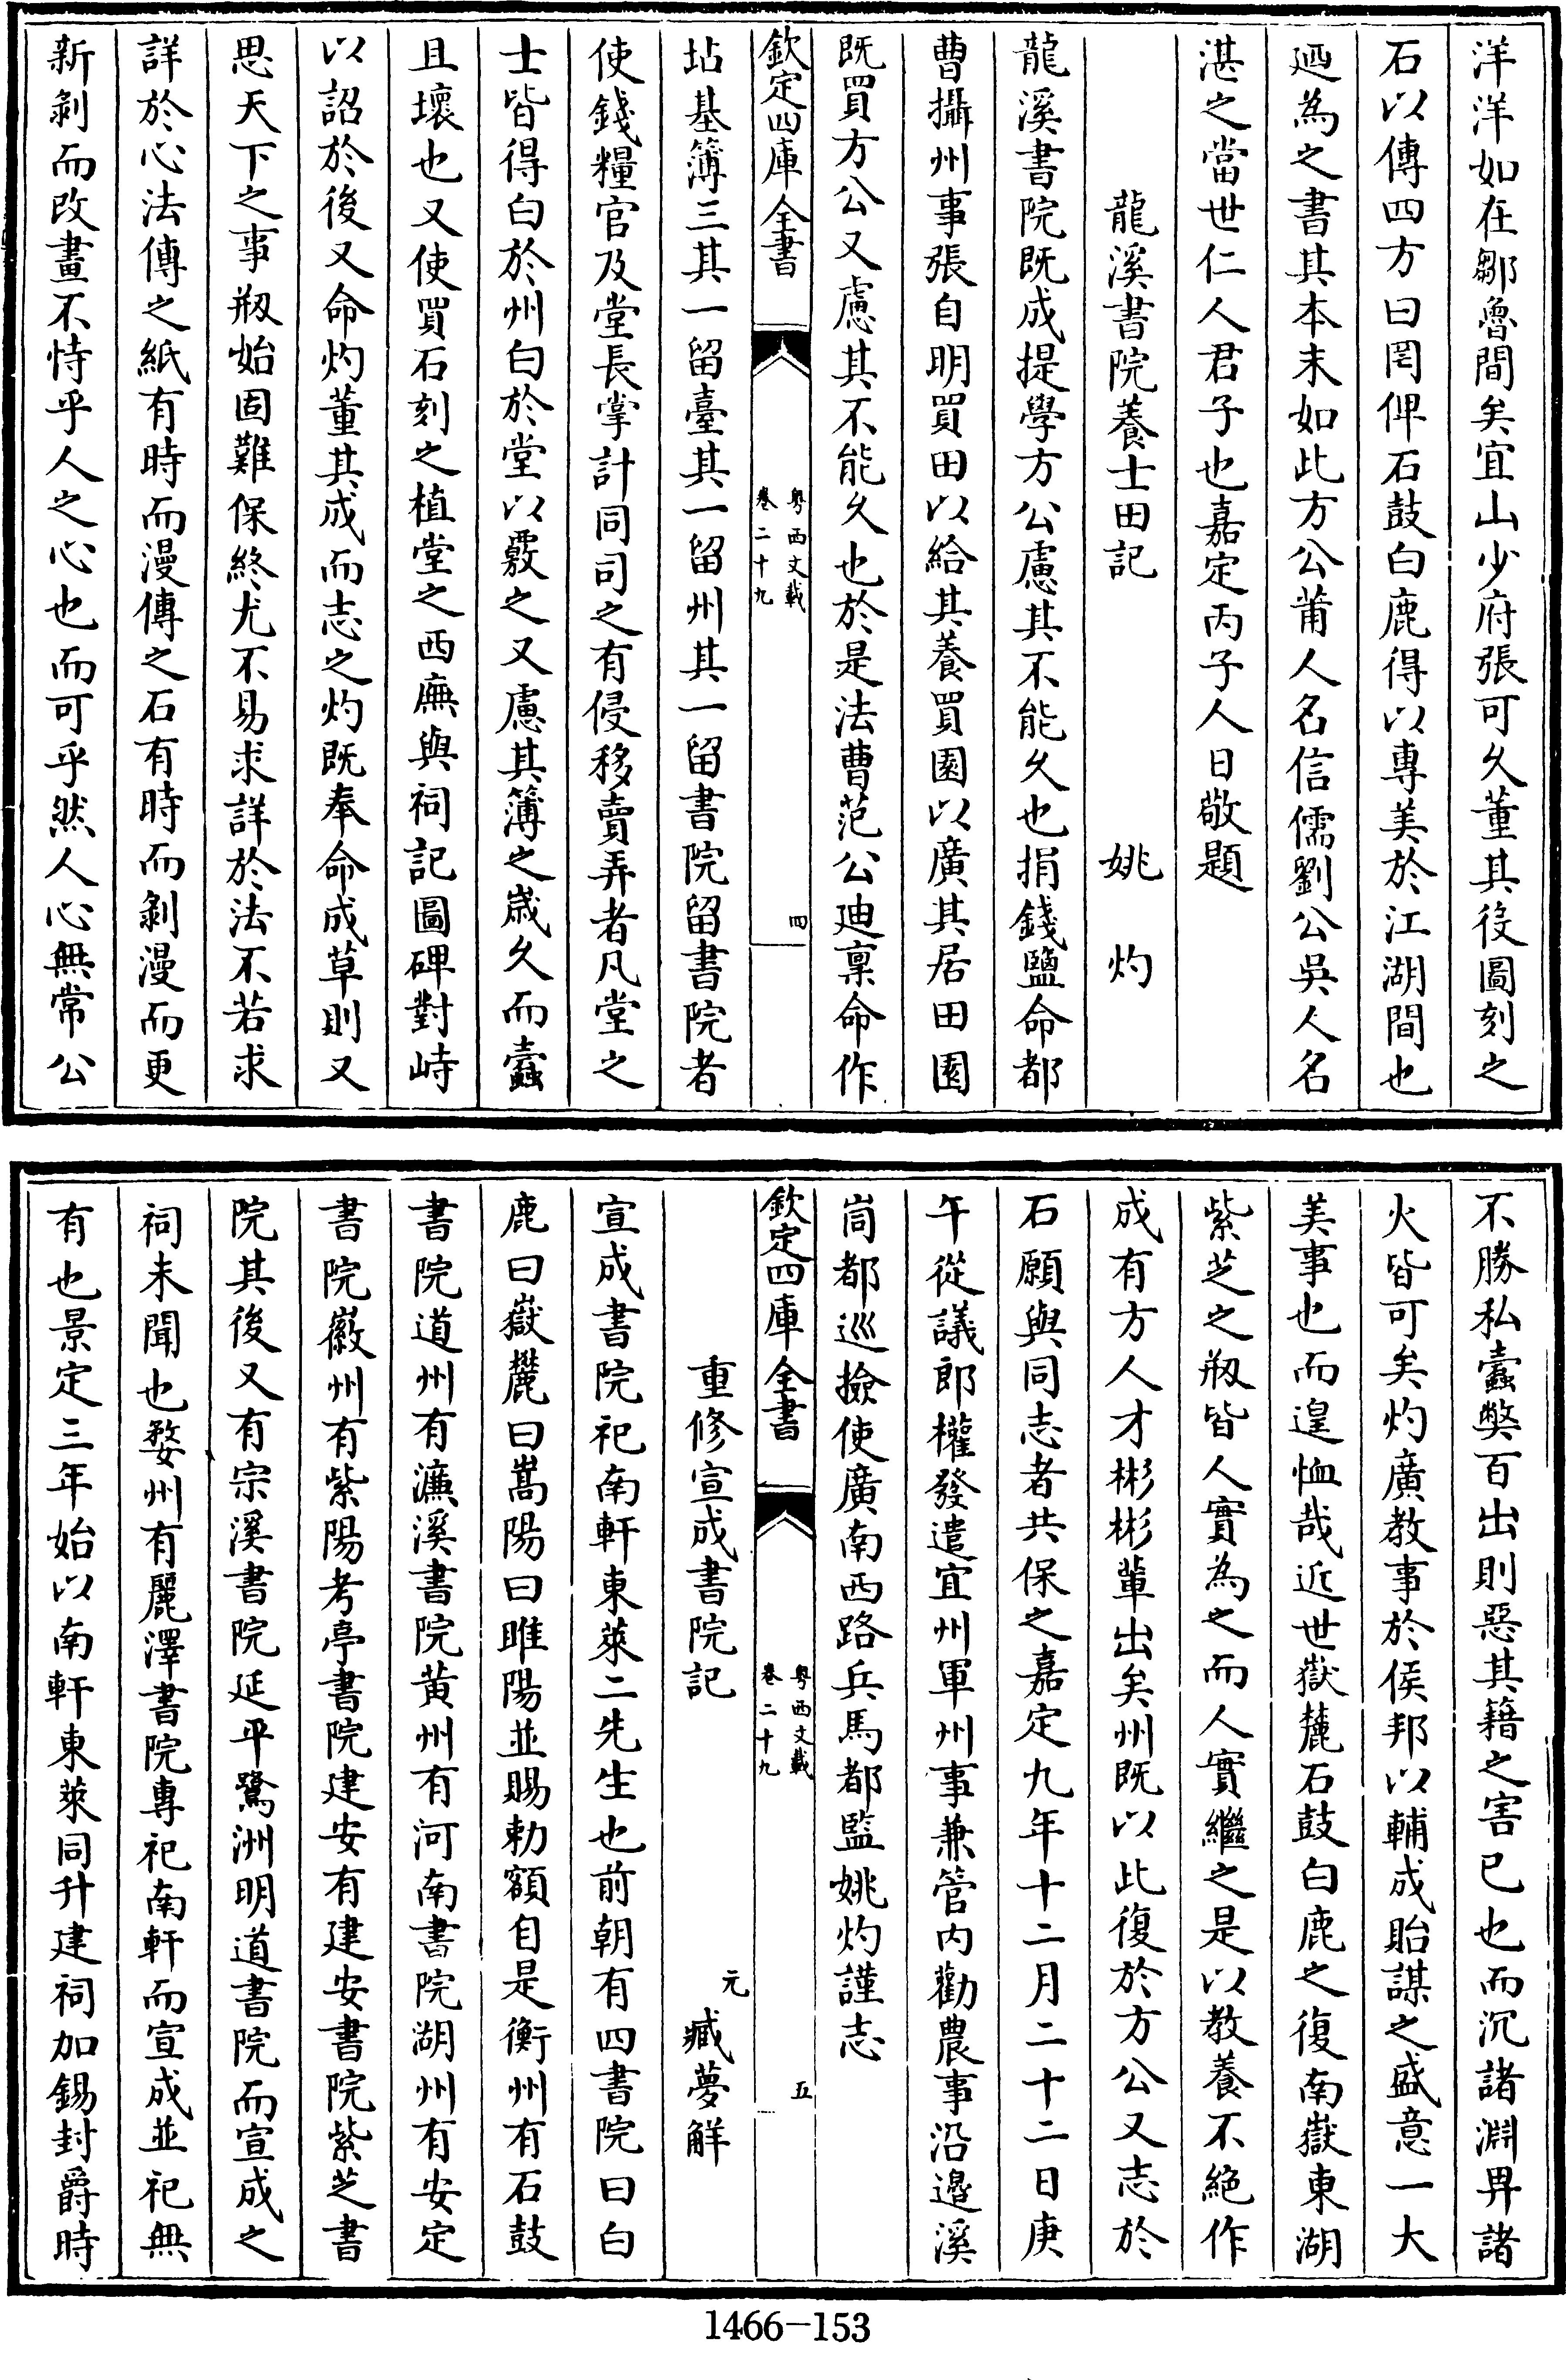 洋洋如在鄒魯間矣宜山少府張可久董其役圖刻之
石以傳四方曰罔俾石鼓白鹿得以專美於江湖間也
廼為之書其本末如此方公莆人名信儒劉公吳人名
湛之當世仁人君子也嘉定丙子人日敬題
龍溪書院養士田記 姚灼
龍溪書院既成提學方公慮其不能久也捐錢鹽命都
曹攝州事張自明買田以給其養買園以廣其居田園
既買方公又慮其不能久也於是法曹范公廸稟命作
欽定四庫全書 粤西文載 卷二十九 四
坫基簿三其一留臺其一留州其一留書院留書院者
使錢糧官及堂長掌計同司之有侵移賣弄者凡堂之
士皆得白於州白於堂以覈之又慮其簿之歲久而蠹
且壞也又使買石刻之植堂之西廡與祠記圖碑對峙
以詔於後又命灼董其成而志之灼既奉命成草則又
思天下之事剏始固難保終尤不易求詳於法不若求
詳於心法傳之紙有時而漫傳之石有時而剝漫而更
新剝而改畫不恃乎人之心也而可乎然人心無常公
不勝私蠹弊百出則惡其籍之害已也而沉諸淵畀諸
火皆可矣灼廣教事於侯邦以輔成貽謀之盛意一大
美事也而遑恤哉近世嶽麓石鼓白鹿之復南嶽東湖
紫芝之剏皆人實為之而人實繼之是以教養不絕作
成有方人才彬彬輩出矣州既以此復於方公又志於
石願與同志者共保之嘉定九年十二月二十二日庚
午從議郎權發遣宜州軍州事兼管内勸農事沿邉溪
峝都巡撿使廣南西路兵馬都監姚灼謹志
欽定四庫全書 粤西文載 卷二十九 五
重修宣成書院記 元 臧夢解
宣成書院祀南軒東萊二先生也前朝有四書院曰白
鹿曰嶽麓曰嵩陽曰睢陽並賜勅額自是衡州有石鼓
書院道州有濂溪書院黄州有河南書院湖州有安定
書院徽州有紫陽考亭書院建安有建安書院紫芝書
院其後又有宗溪書院延平鷺洲明道書院而宣成之
祠未聞也婺州有麗澤書院專祀南軒而宣成並祀無
有也景定三年始以南軒東萊同升建祠加錫封爵時
1466-153